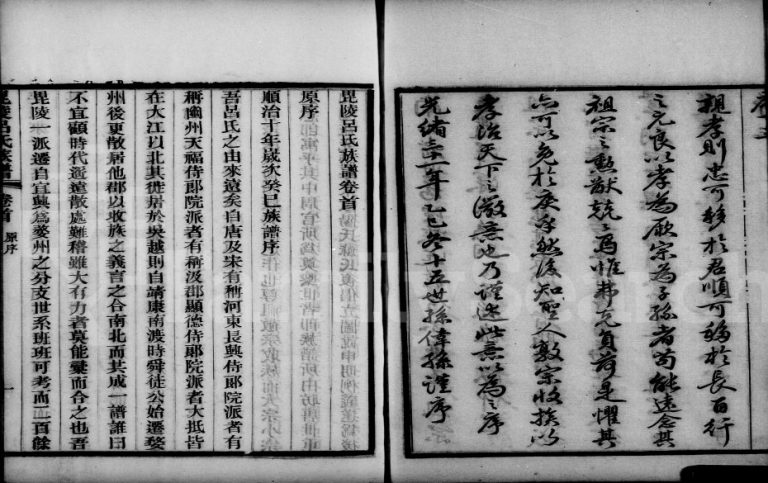 親孝則忠可移於君順可移於長百行
之先良以孝為厥宗為子孫者苟能遠念其
祖宗之勲猷兢兢焉惟弗克負荷是懼其
亦可以免於戾乎然後知聖人敦宗收族以
孝治天下之微意也乃謹述此意以為之序
光緒三十一年乙巳冬十五世孫偉孫謹序
毘陵呂氏族譜卷首
原序
順治十年歲次癸巳族譜序
吾呂氏之由來遠矣自唐及宋有稱河東長興侍郞院派者有
稱幽州天福侍郞院派者有稱汲郡顯德侍郞院派者大抵皆
在大江以北其徙居於吳越則自靖康南渡時舜徒公始遷婺
州後更散居他郡以收族之義言之合南北而共成一譜誰曰
不宜顧時代遥遠散處難稽雖大有力者莫能彙而合之也吾
毘陵一派遷自宜興為婺州之分支世系班班可考而二百餘
毘陵呂氏族譜 卷首 原序 一